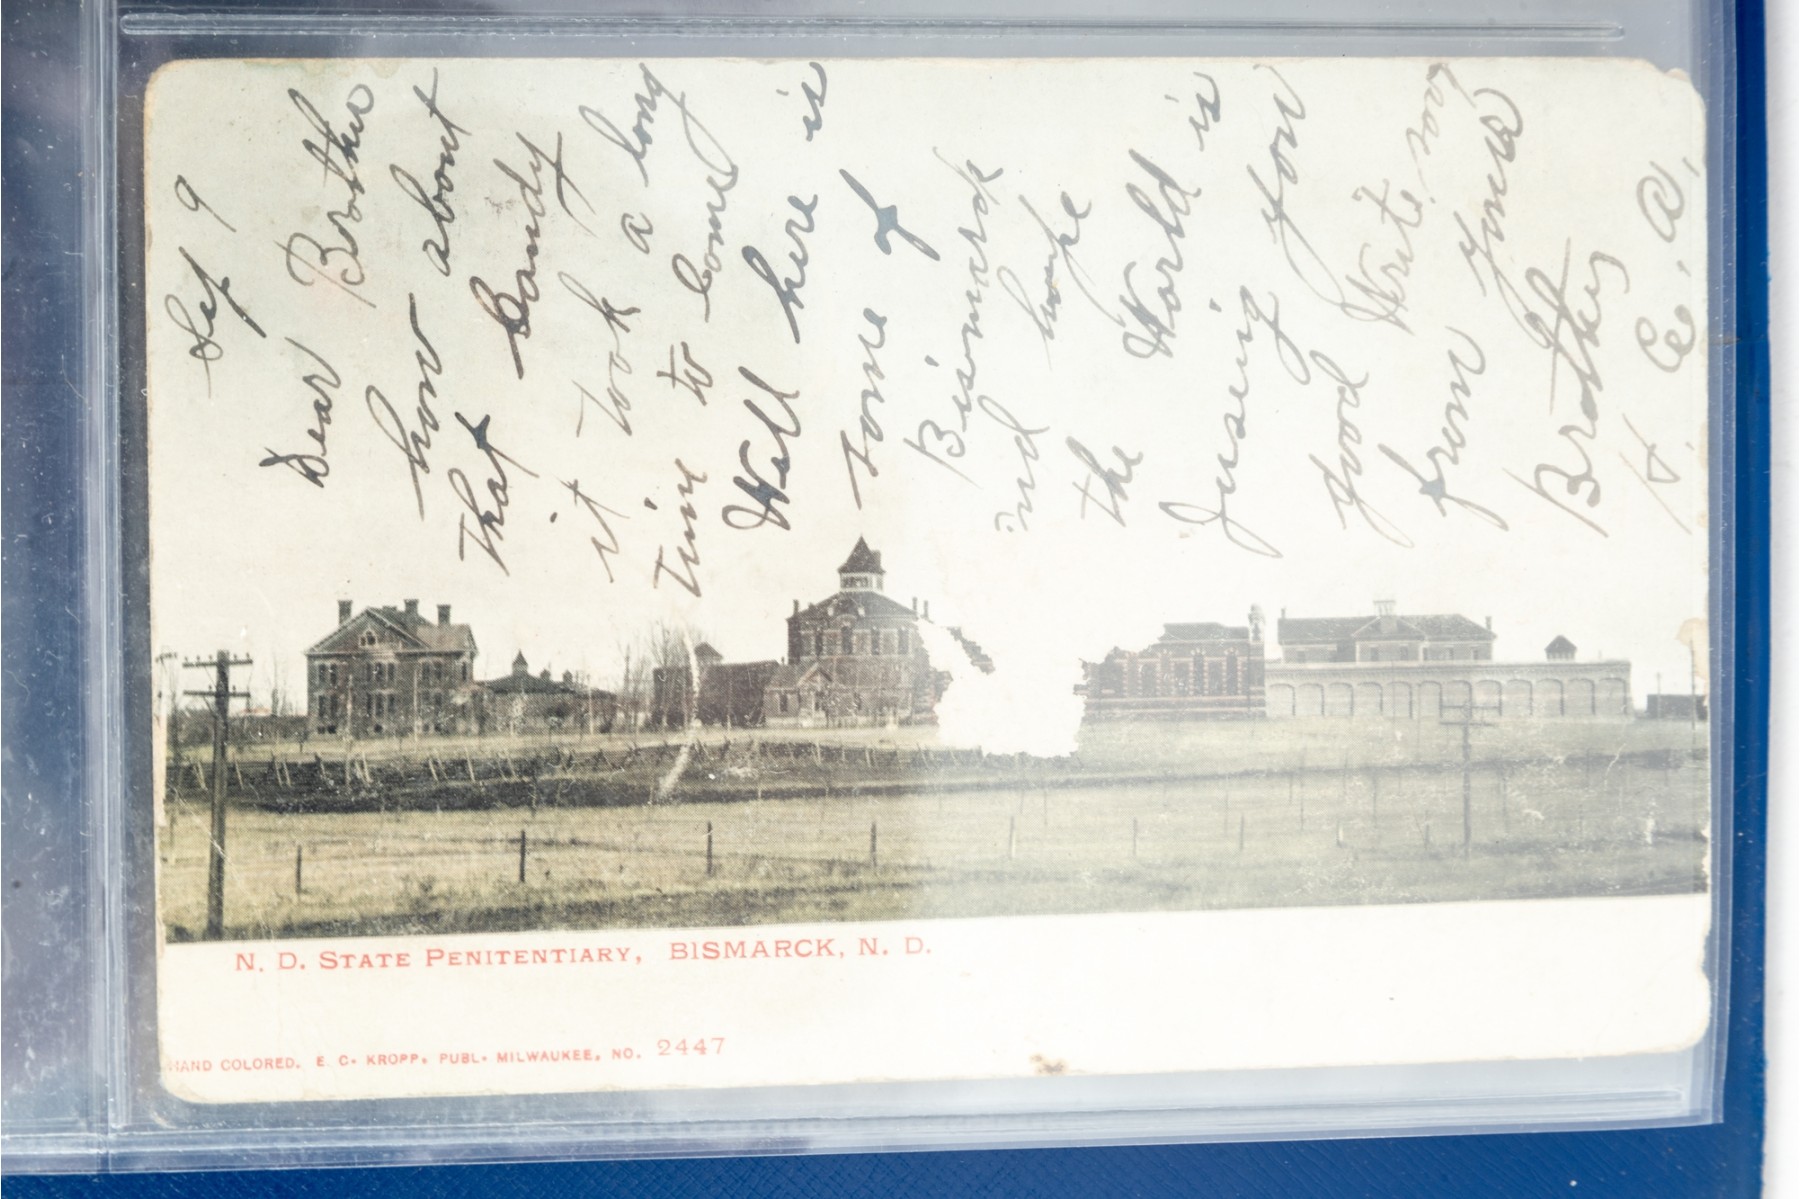 Sep 9
Dear Brother
how about
that Candy
it took a long
time to come
Well here is
some of
Bismarck
and hope
the World is
Juseing you
good Write soon
from Your
Brother
H. C. A.
N. D. STATE PENITENTIARY, BISMARCK, N. D.
HAND COLORED. E. C. KROPP. PUBL. MILWAUKEE. NO. 2447